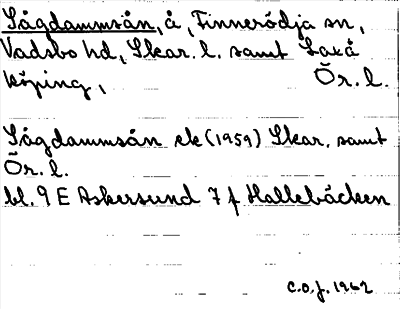 Sågdammsån, å, Finnerödja sn,
Vadsbo hd, Skar. l. samt Laxå
köping, Ör. l.
Sågdammsån ek (1959) Skar. samt
Ör. l.
bl. 9 E Askersund 7 f Hallebäcken
C.O.J. 1962